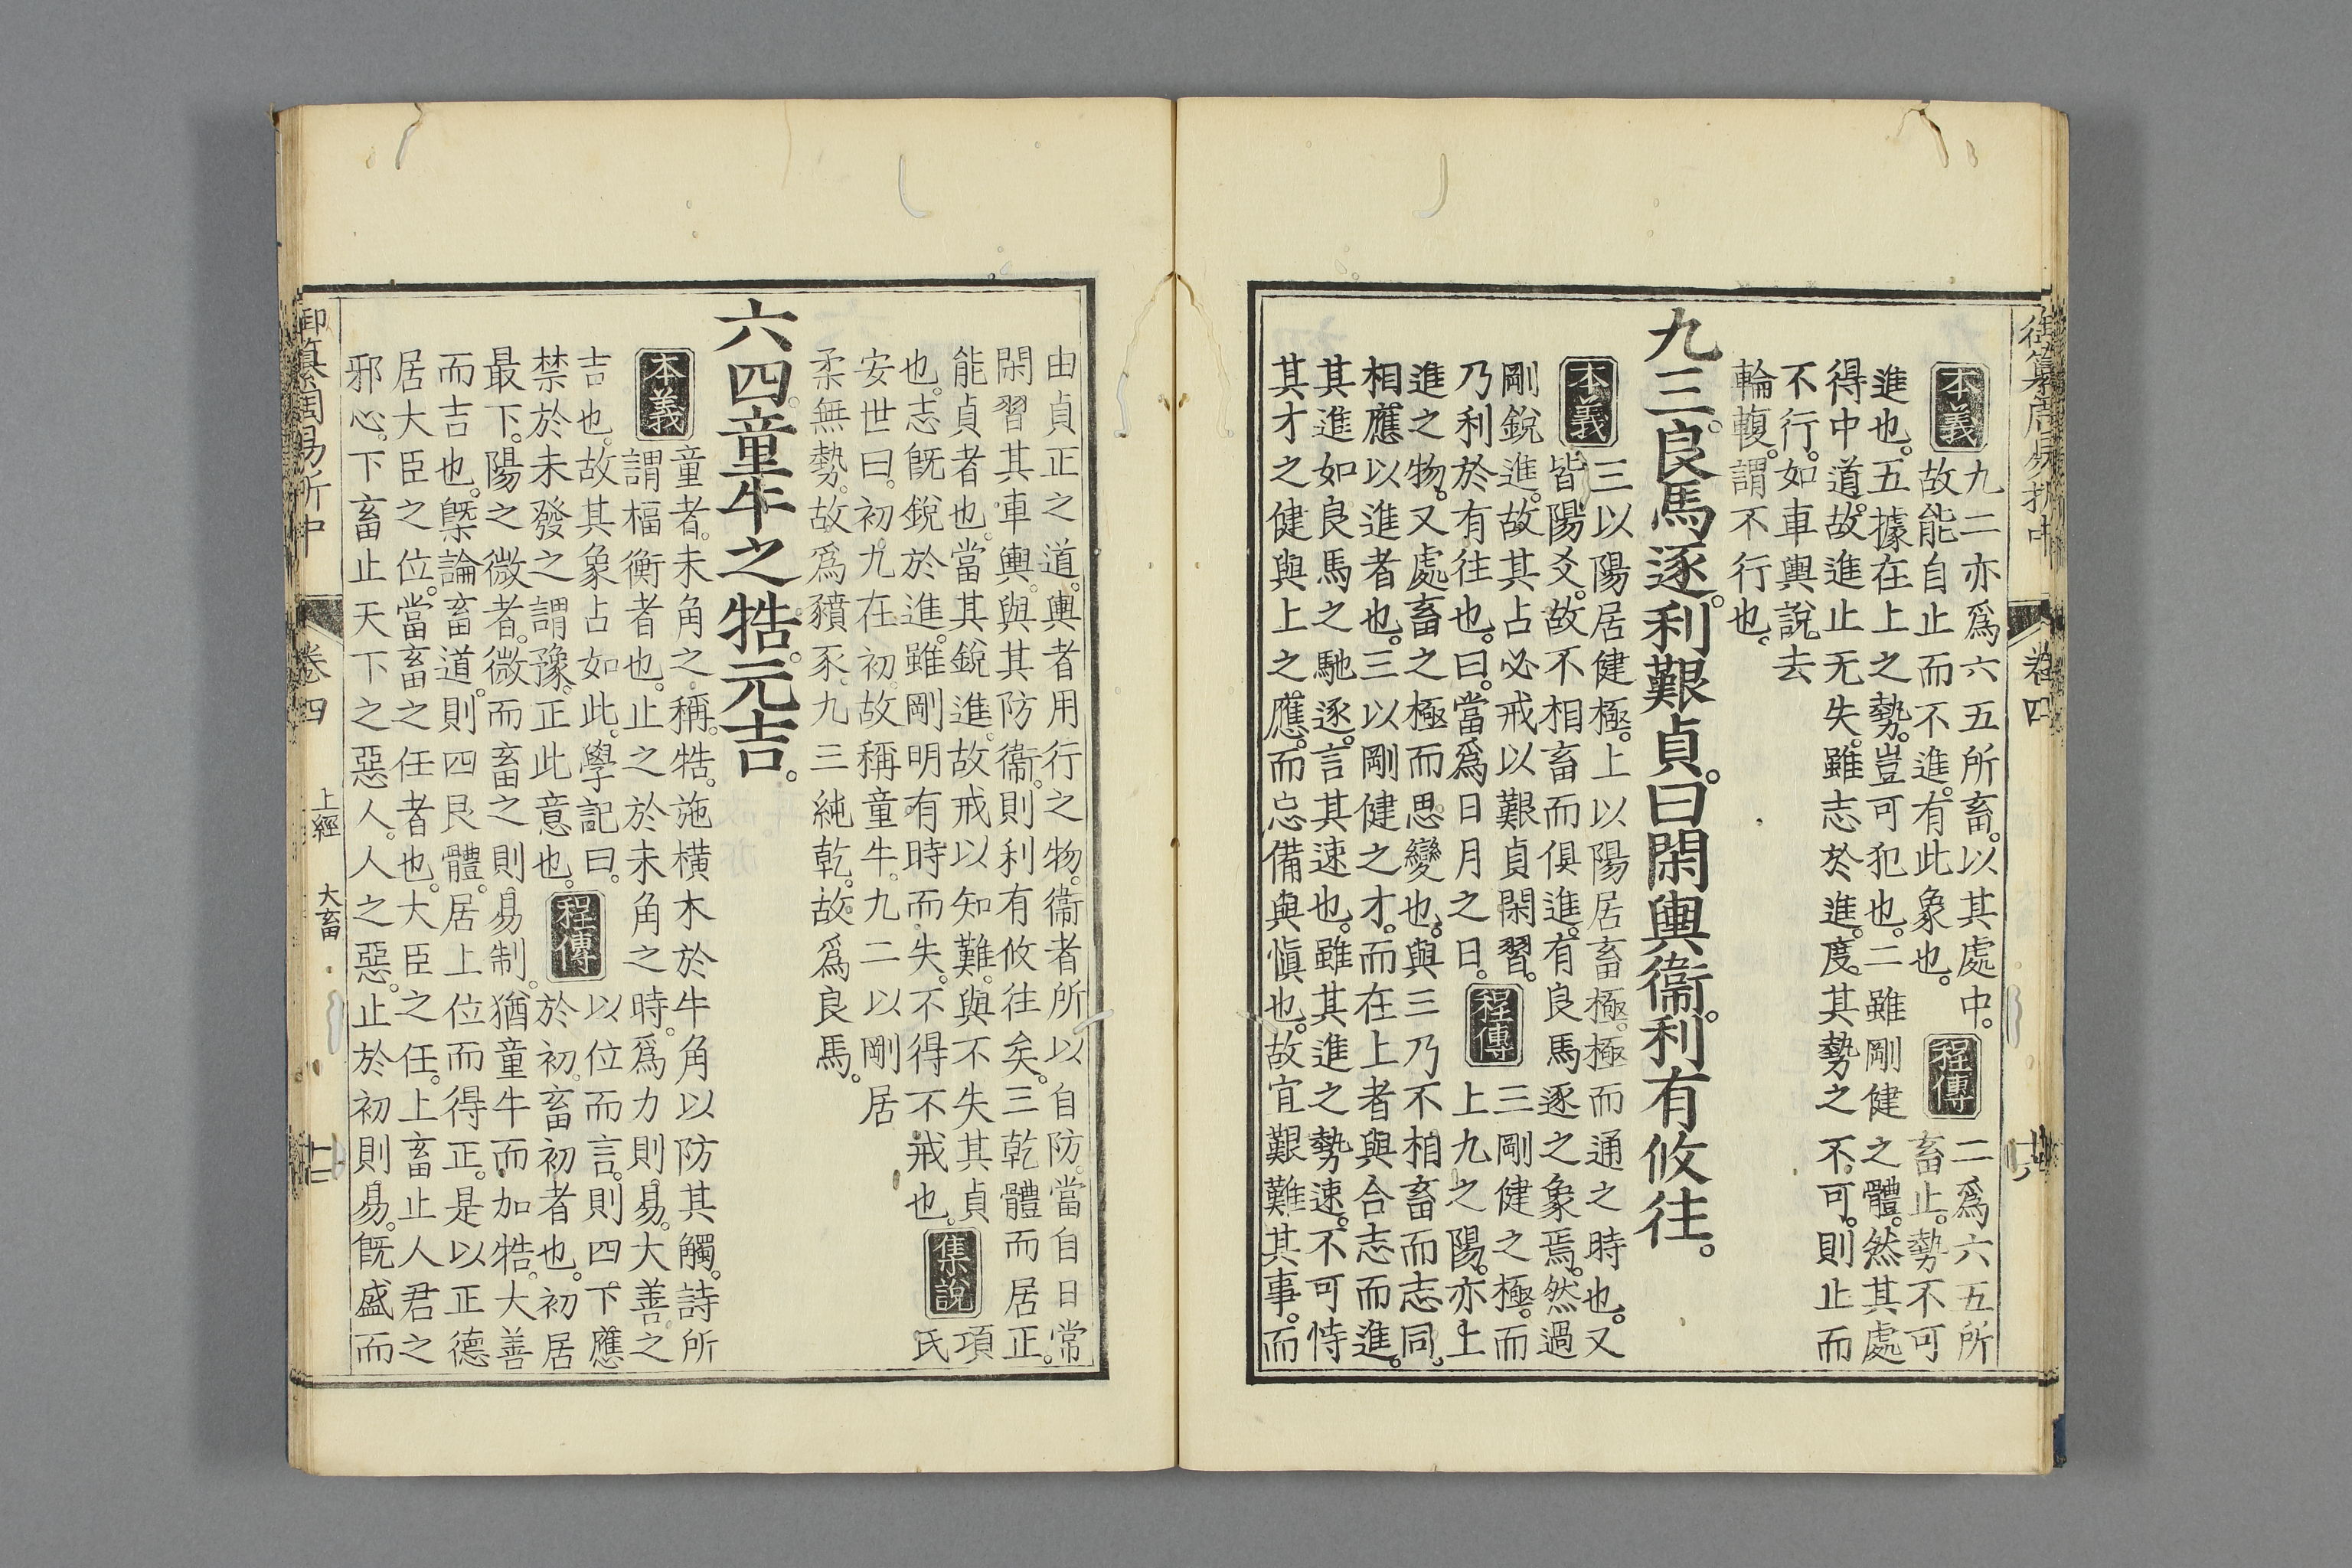 御纂周易折中 卷四
本義 九二亦爲六五所畜。以其處中。故能自止而不進。有此象也。 程傳 二爲六五所畜止。勢不可
進也。五據在上之勢。豈可犯也。二雖剛健之體。然其處
得中道。故進止无失。雖志於進。度其勢之不可。則止而
不行。如車輿說去
輪輹。謂不行也。
九三。良馬逐。利艱貞。曰閑輿衞。利有攸往。
本義 三以陽居健極。上以陽居畜極。極而通之時也。又皆陽爻。故不相畜而俱進。有良馬逐之象焉。然過
剛銳進。故其占必戒以艱貞閑習。乃利於有往也。曰。當爲日月之日。 程傳 三剛健之極。而上九之陽。亦上
進之物。又處畜之極而思變也。與三乃不相畜而志同。
相應以進者也。三以剛健之才。而在上者與合志而進。
其進如良馬之馳逐。言其速也。雖其進之勢速。不可恃
其才之健與上之應。而忘備與愼也。故宜艱難其事。而
由貞正之道。輿者用行之物。衞者所以自防。當自日常
閑習其車輿。與其防衞。則利有攸往矣。三乾體而居正。
能貞者也。當其銳進。故戒以知難。與不失其貞
也。志旣銳於進。雖剛明有時而失。不得不戒也。 集說 項氏
安世曰。初九在初。故稱童牛。九二以剛居
柔無勢。故爲豶豕。九三純乾。故爲良馬。
六四。童牛之牿。元吉。
本義 童者。未角之稱。牿。施横木於牛角以防其觸。詩所謂楅衡者也。止之於未角之時。爲力則易。大善之
吉也。故其象占如此。學記曰。禁於未發之謂豫。正此意也。 程傳 以位而言。則四下應於初。畜初者也。初居
最下。陽之微者。微而畜之則易制。猶童牛而加牿。大善
而吉也。槩論畜道。則四艮體。居上位而得正。是以正德
居大臣之位。當畜之任者也。大臣之任。上畜止人君之
邪心。下畜止天下之惡人。人之惡。止於初則易。旣盛而
御纂周易折中 卷四 上經 大畜